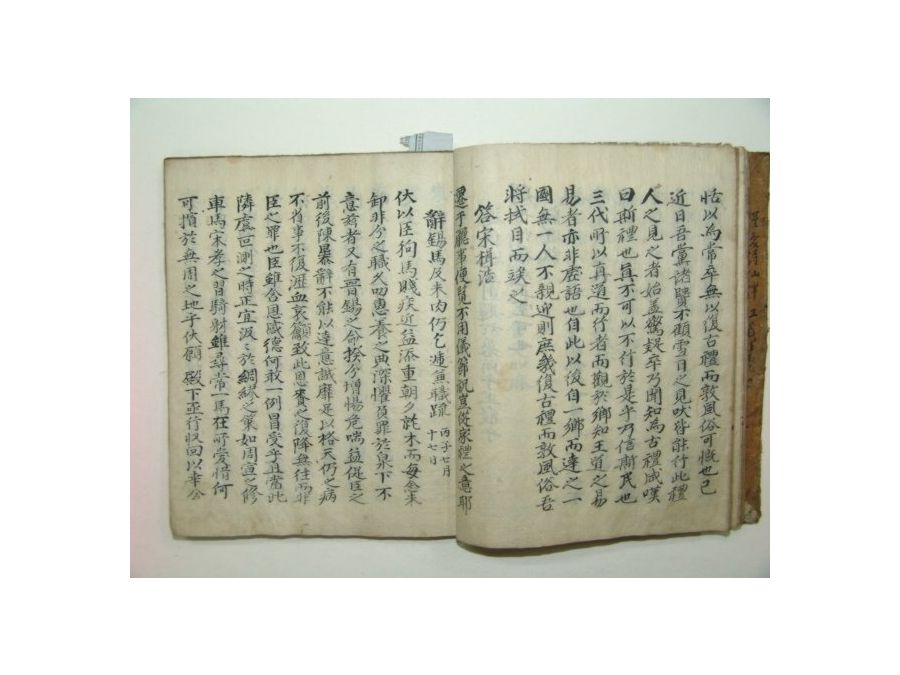 恬以為常卒無以復古禮而敦風俗可慨也已
近日吾黨諸賢不顧雪日之見吠皆能行此禮
人之見之者始蓋驚疑卒乃聞知為古禮咸嘆
曰斯禮也真不可以不行於是乎乃信斯民也
三代所以直道而行者而觀於鄉知王道之易
易者亦非虛語也自此以後自一鄉而達之一
國無一人不親迎則庶幾復古禮而敦風俗吾
將拭目而竢之
答宋楫浩
遷于廳事便覽不用儀節祝宣從家禮之意耶
辭錫馬及米肉仍乞遞兼職疏 丙子七月十七日
伏以臣狗馬賤疾近益添重朝夕託木而每念未
卸非分之職久叨惠養之典深懼負罪於泉下不
意茲者又有晉錫之命揆分增惕危喘益促臣之
前後陳暴辭不能以達意誠靡是以格天仍之病
不省事不復瀝血哀籲致此恩賚之復降無往而非
臣之罪也臣雖含恩感德何敢一例冒受乎且當此
隣虞叵測之時正宜汲汲於綢繆之策如周宣之修
車馬宋孝之習騎射雖尋常一馬在所當惜何
可損於無用之地乎伏願 殿下亟行收回以幸公